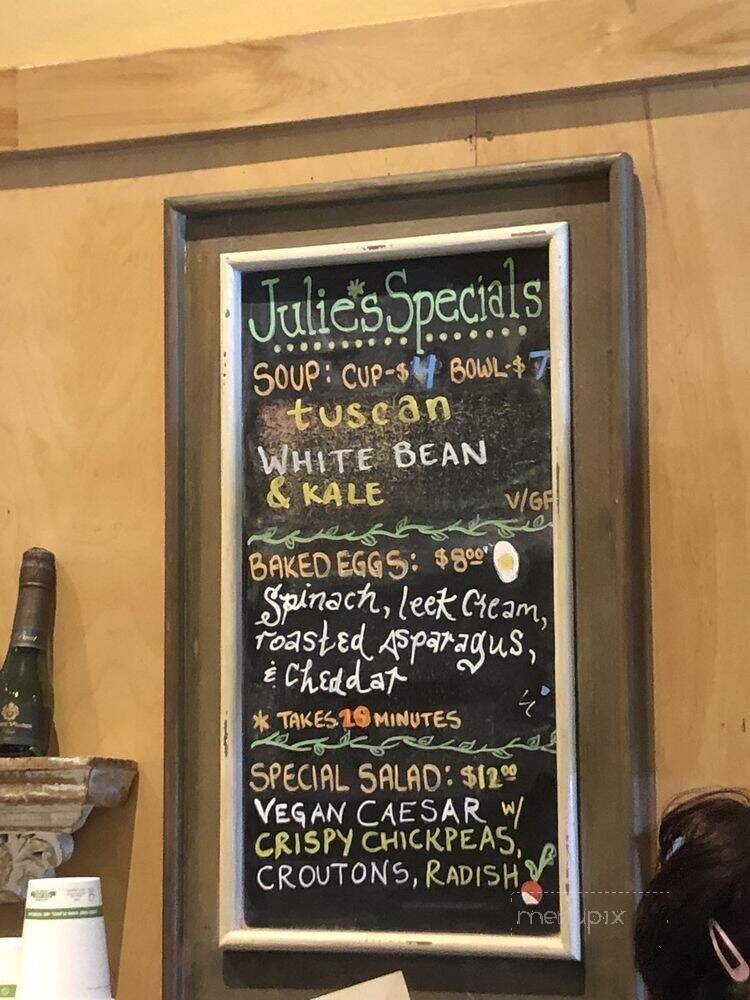 Julie's Specials
SOUP: CUP-$4 BOWL-$7
tuscan
WHITE BEAN
& KALE
V/GF
BAKED EGGS: $8.00
Spinach, leek Cream,
roasted Asparagus,
& Cheddar
* TAKES MINUTES
SPECIAL SALAD: $12.00
VEGAN CAESAR W/
CRISPY CHICKPEAS,
CROUTONS, RADISH
menupix